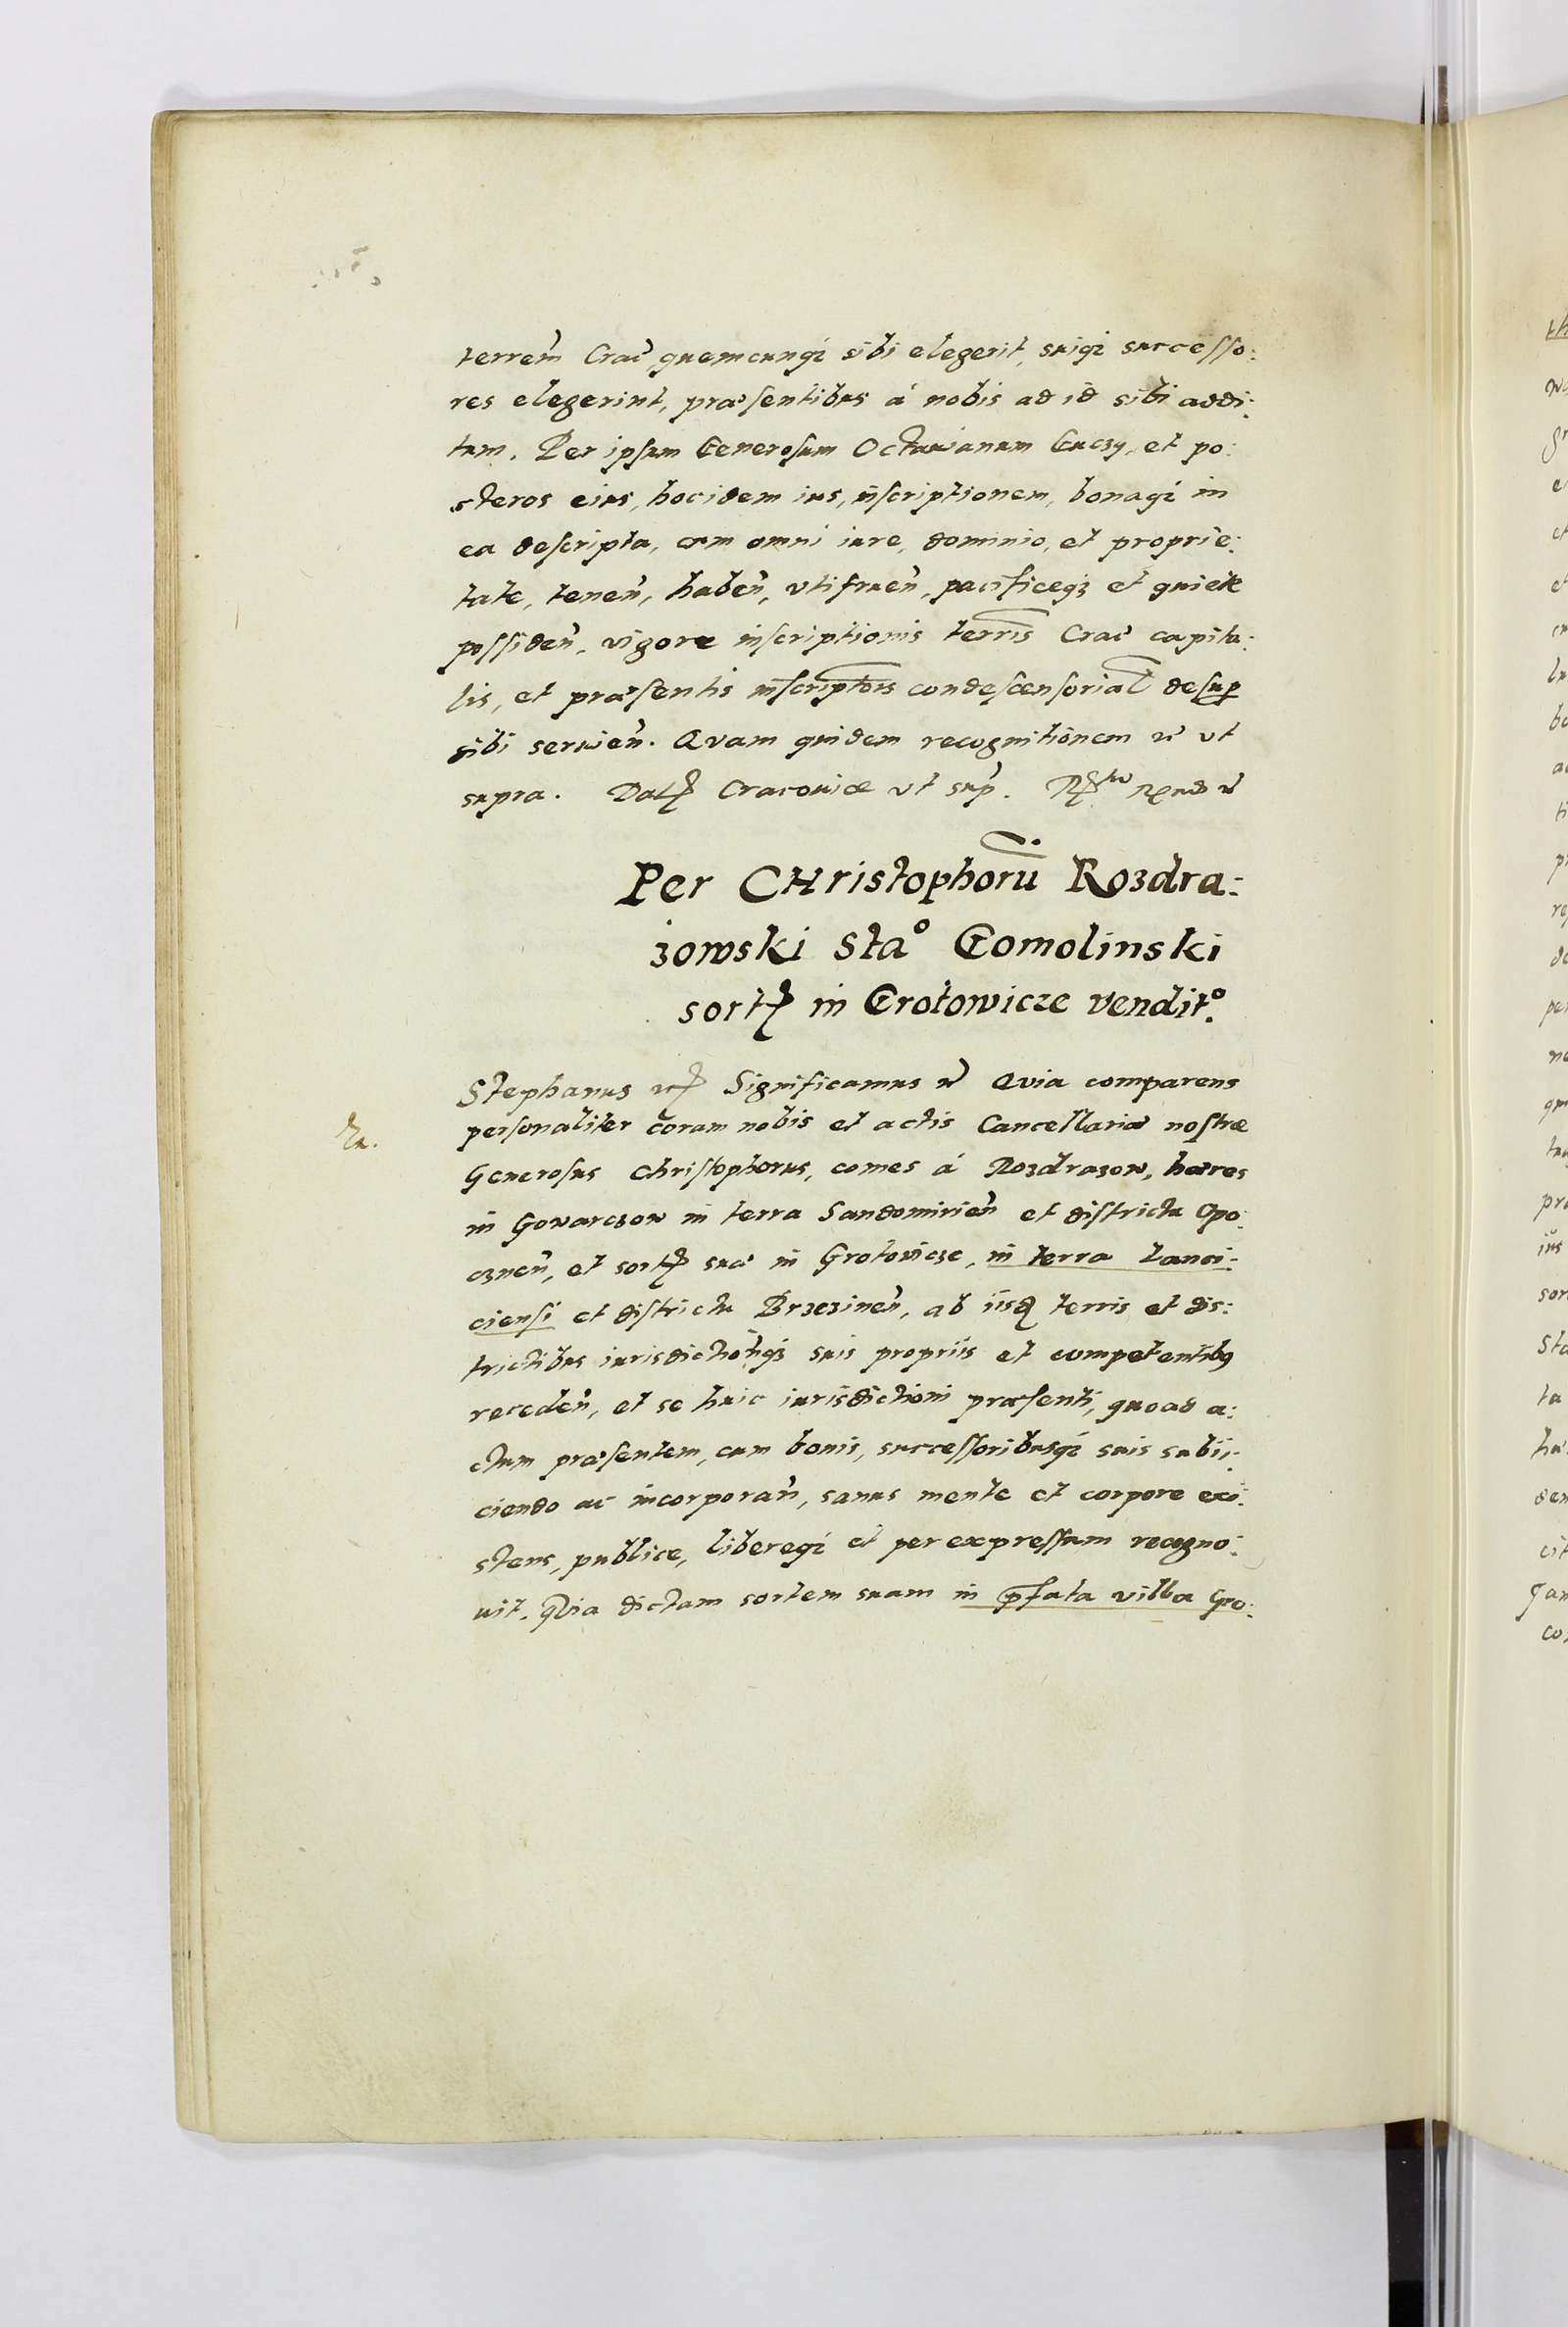 terreñ Crac̃ quemcunq; sibi elegerit, suiq; successo:
res elegerint, præsentibus á nobis ad id sibi addi:
tum. Per ipsum Generosum Octavianum Guczy, et po:
steros eius, hoc idem ius, inscriptionem, bonaq; in
ea descripta, cum omni iure, dominio, et proprie:
tate, teneñ, habeñ, vtifrueñ, pacificeq; et quiete
possideñ, vigore inscriptionis terris̃ Crac̃ capita:
lis, et præsentis inscriptois condescensorial̃ desup
sibi servieñ. Quam quidem recognitionem ꝛc̃ vt
supra. Datꝭ Cracouiæ vt sup̃.
Per CHristophorũ Rozdra:
zowski Stao Gomolinski
sortꝭ in Grotowicze vendito.
Stephanus ꝛcꝭ Significamus ꝛc̃ Quia comparens
personaliter coram nobis et actis Cancellariæ nostræ
Generosus Christophorus, comes á Rozdrazow, hæres
in Gowarczow in terra Sandomirieñ et districtu Opo:
czneñ, et sortꝭ suæ in Grotowicze, in terra Lanci:
ciensi et districtu Brzezineñ, ab iisdꝫ terris et dis:
trictibus iurisdictioñqꝫ suis propriis et competentibꝰ
recedeñ, et se huic iurisdictioni præsenti, quoad a:
ctum præsentem, cum bonis, successoribusq; suis subii:
ciendo ac incorporañ, sanus mente et corpore exi:
stens, publice, libereq; et per expressum recogno:
uit. Quia dictam sortem suam in p̃fata villa Gro: